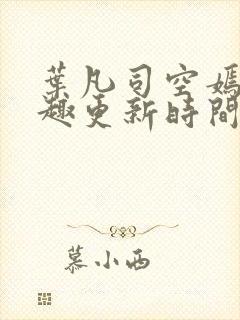 葉凡司空嫣
趣更新時間
慕小西